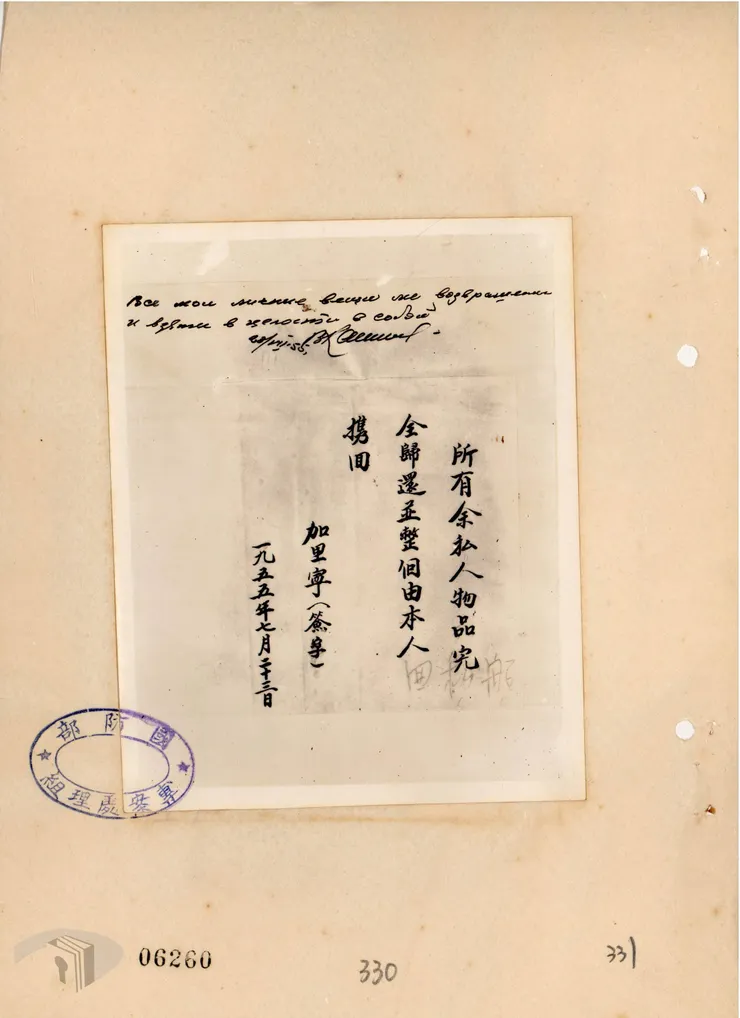 Все мои личные вещи мне возвращены
и взяты в целости с собой
所有余私人物品完
全歸還並整個由本人
携回
加里寧（簽字）
一九五五年七月二十三日
國防部
專案處理組
06260
330
331